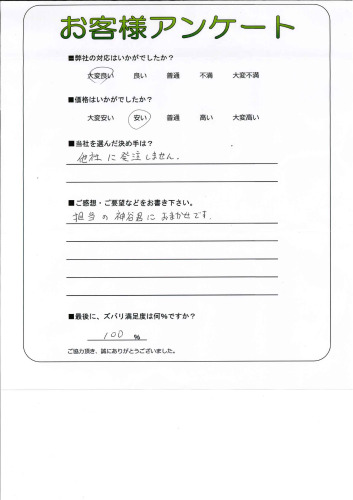 お客様アンケート
■弊社の対応はいかがでしたか？
大変良い 良い 普通 不満 大変不満
■価格はいかがでしたか？
大変安い 安い 普通 高い 大変高い
■当社を選んだ決め手は？
他社に発注しません.
■ご感想・ご要望などをお書き下さい。
担当の神谷君におまかせです.
■最後に、ズバリ満足度は何%ですか？
100 %
ご協力頂き、誠にありがとうございました。